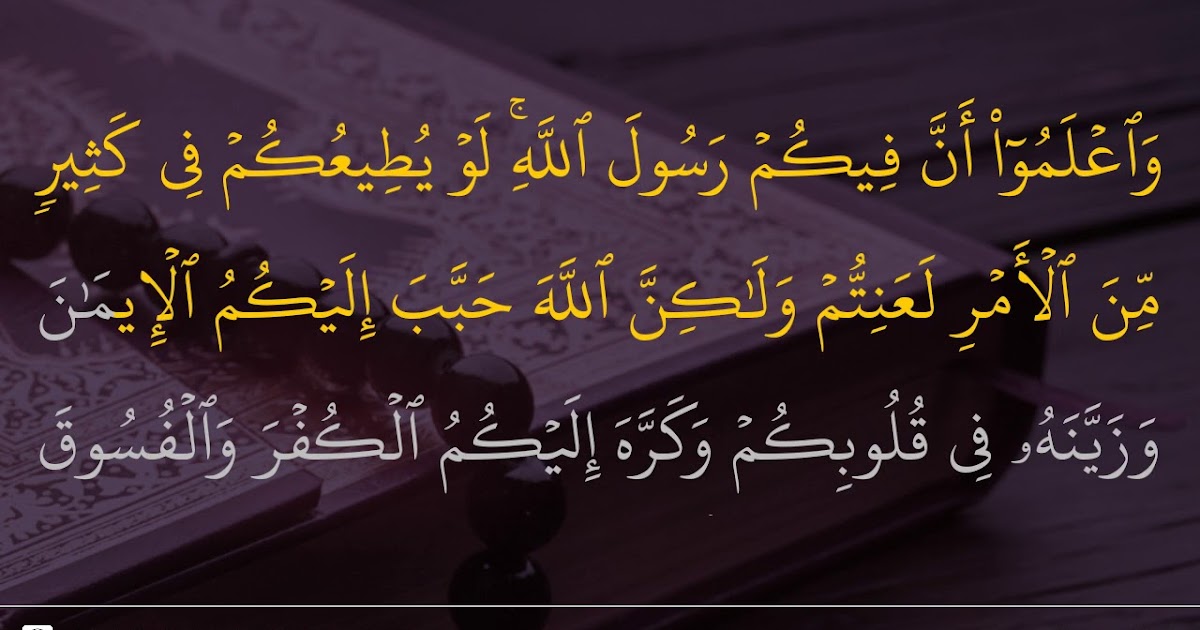 وَٱعۡلَمُوٓاْ أَنَّ فِيكُمۡ رَسُولَ ٱللَّهِۚ لَوۡ يُطِيعُكُمۡ فِي كَثِيرٖ
مِّنَ ٱلۡأَمۡرِ لَعَنِتُّمۡ وَلَٰكِنَّ ٱللَّهَ حَبَّبَ إِلَيۡكُمُ ٱلۡإِيمَٰنَ
وَزَيَّنَهُۥ فِي قُلُوبِكُمۡ وَكَرَّهَ إِلَيۡكُمُ ٱلۡكُفۡرَ وَٱلۡفُسُوقَ